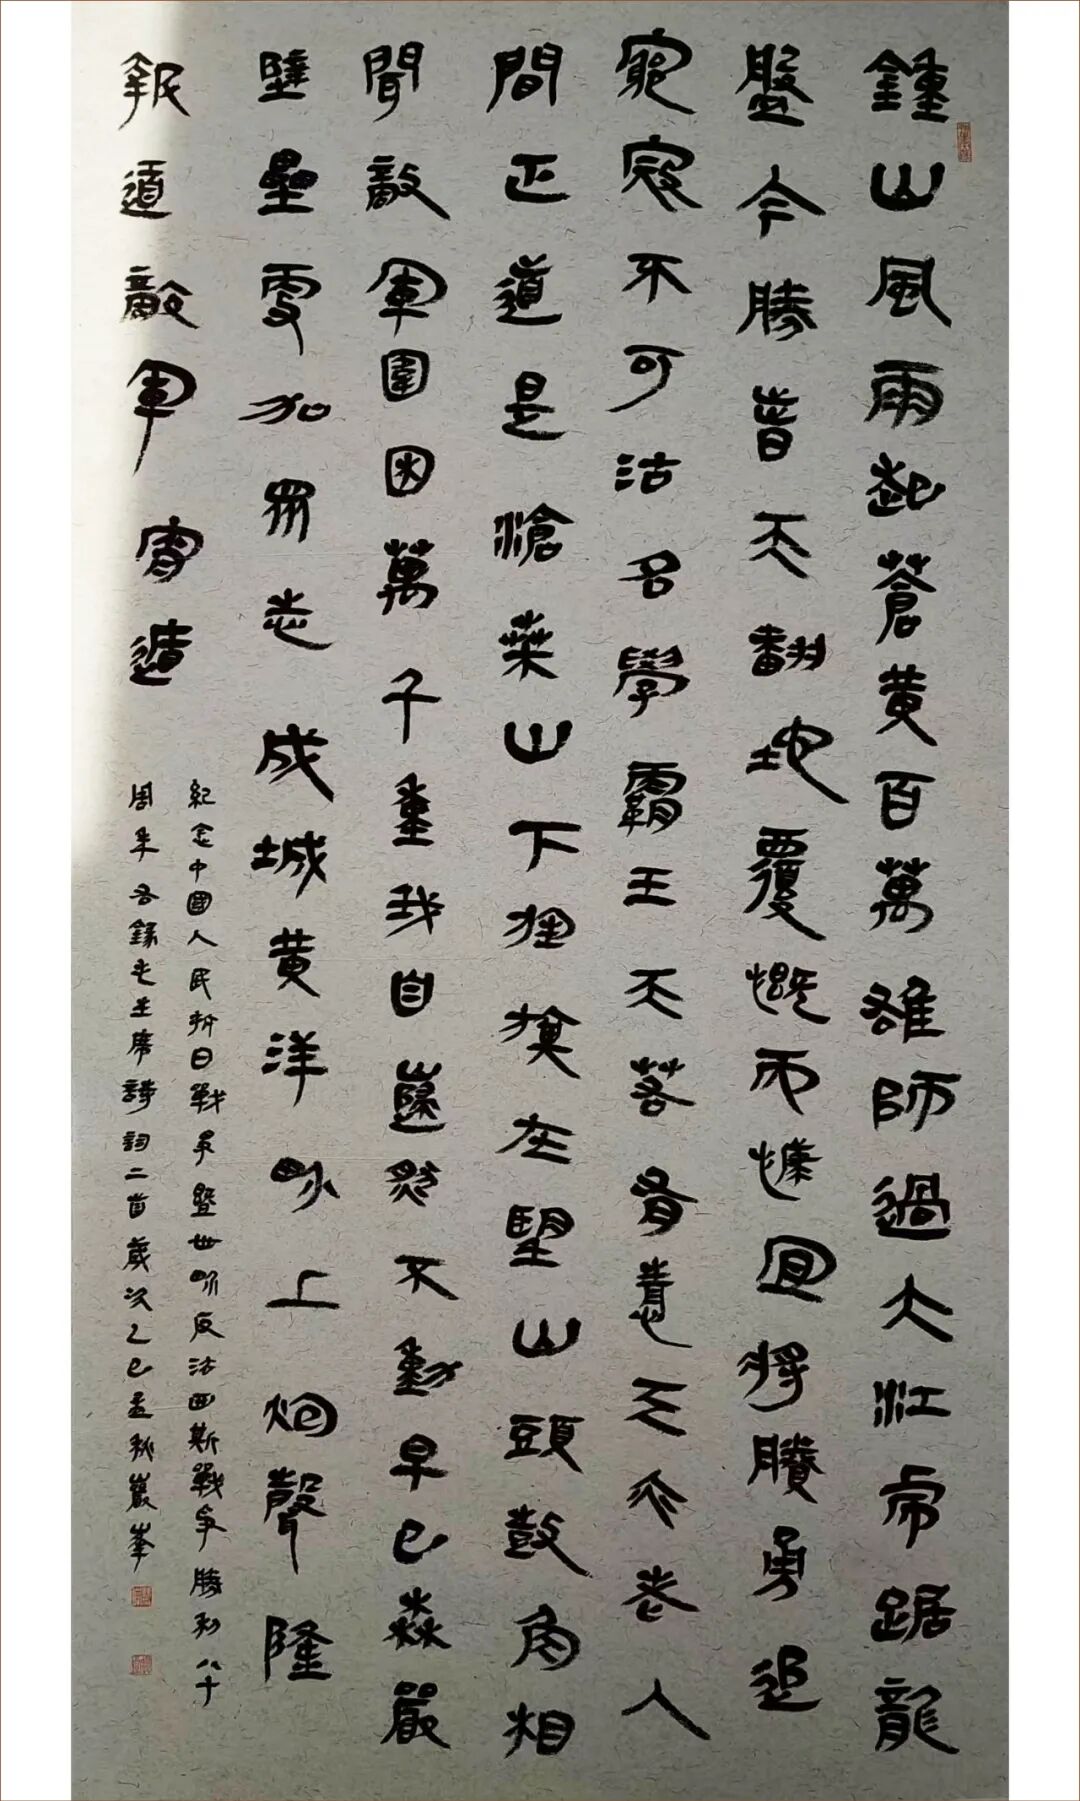 鍾山風雨起蒼黃百萬雄師過大江虎踞龍
盤今勝昔天翻地覆慨而慷宜將賸勇追
窮寇不可沽名學霸王天若有情天亦老人
間正道是滄桑山下旌旗在望山頭鼓角相
聞敵軍圍困萬千重我自巋然不動早已森嚴
壁壘更加眾志成城黃洋界上炮聲隆
報道敵軍宵遁
紀念中國人民抗日戰爭暨世界反法西斯戰爭勝利八十
周年錄毛主席詩詞二首歲次乙巳孟秋巖峯